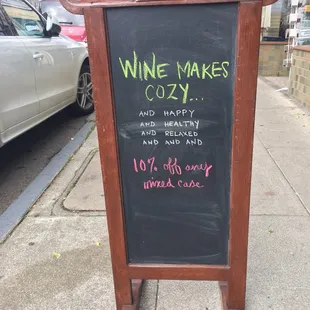 WINE MAKES
COZY...
AND HAPPY
AND HEALTHY
AND RELAXED
AND AND AND
10% off any
mixed case